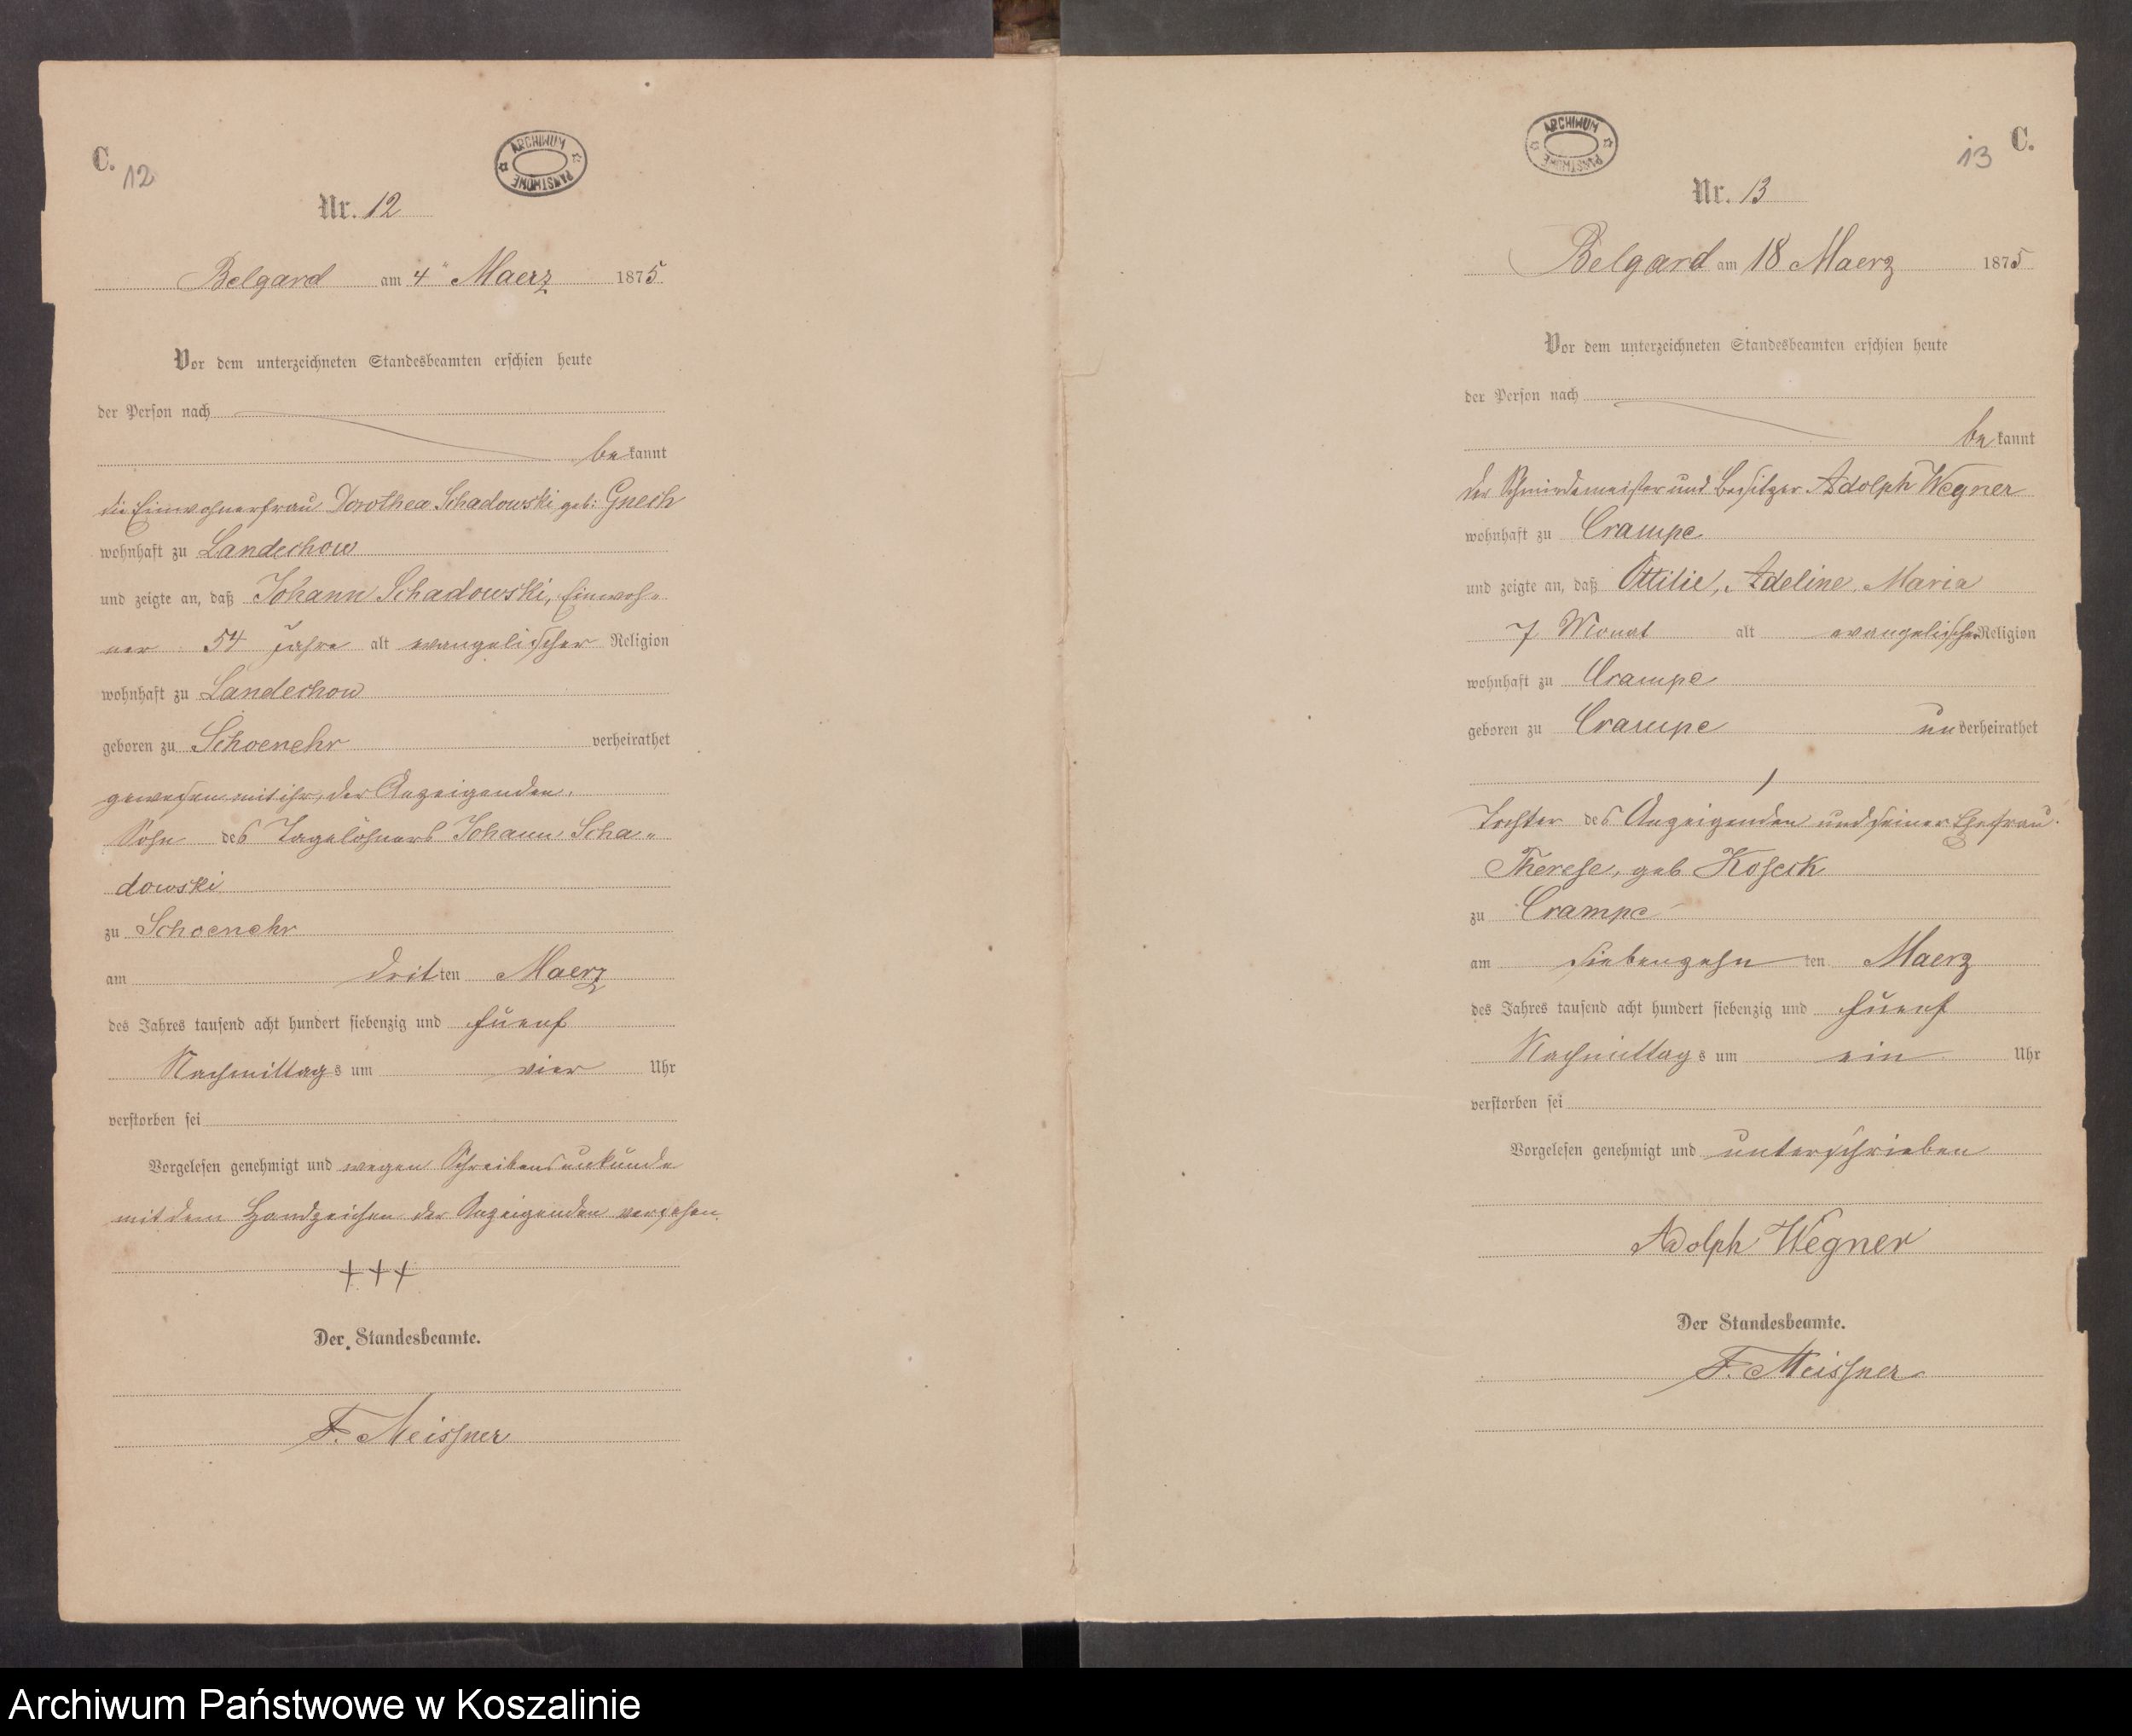 C.
12
ARCHIWUM PAŃSTWOWE
Nr. 12
Belgard am 4ᵗ Maerz 1875
Vor dem unterzeichneten Standesbeamten erschien heute
der Person nach
bekannt
die Einwohnerfrau Dorothea Schadowski, geb: Gnech
wohnhaft zu Landechow
und zeigte an, daß Johann Schadowski, Einwoh-
ner 54 Jahre alt evangelischer Religion
wohnhaft zu Landechow
geboren zu Schoenehr verheirathet
gewesen mit ihr, der Anzeigenden,
Sohn des Tagelöhners Johann Scha-
dowski
zu Schoenehr
am dritten Maerz
des Jahres tausend acht hundert siebenzig und fuenf
Nachmittags um vier Uhr
verstorben sei
Vorgelesen genehmigt und wegen Schreibensunkunde
mit dem Handzeichen der Anzeigenden versehen.
+++
Der Standesbeamte.
F. Meissner
ARCHIWUM PAŃSTWOWE
13 C.
Nr. 13
Belgard am 18 Maerz 1875
Vor dem unterzeichneten Standesbeamten erschien heute
der Person nach
bekannt
der Schmiedemeister und Besitzer Adolph Wegner
wohnhaft zu Crampe
und zeigte an, daß Ottilie, Adeline, Maria
7 Monat alt evangelischer Religion
wohnhaft zu Crampe
geboren zu Crampe unverheirathet
Tochter des Anzeigenden und seiner Ehefrau
Therese, geb Koseck
zu Crampe
am siebenzehnten Maerz
des Jahres tausend acht hundert siebenzig und fuenf
Nachmittags um ein Uhr
verstorben sei
Vorgelesen genehmigt und unterschrieben
Adolph Wegner
Der Standesbeamte.
F. Meissner
Archiwum Państwowe w Koszalinie